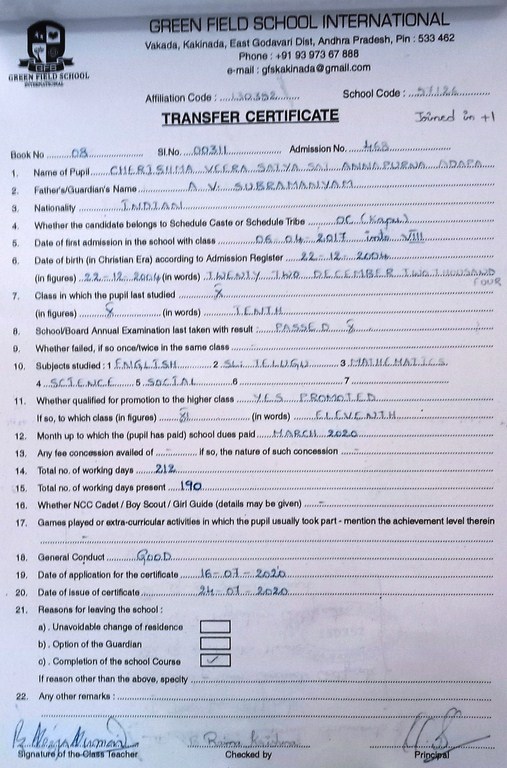 GREEN FIELD SCHOOL INTERNATIONAL
Vakada, Kakinada, East Godavari Dist, Andhra Pradesh, Pin : 533 462
Phone : +91 93 973 67 888
e-mail : gfskakinada@gmail.com
GFS
GREEN FIELD SCHOOL
INTERNATIONAL
Affiliation Code : 130382 School Code : 57126
TRANSFER CERTIFICATE
Joined in +1
Book No 08 Sl.No. 00311 Admission No. 468
1. Name of Pupil CHERISHMA VEERA SATYA SAI ANNAPURNA ADAPA
2. Father's/Guardian's Name A V. SUBRAMANIYAM
3. Nationality INDIAN
4. Whether the candidate belongs to Schedule Caste or Schedule Tribe OC (Kapu)
5. Date of first admission in the school with class 06-04-2017 into VIII
6. Date of birth (in Christian Era) according to Admission Register 22-12-2004
(in figures) 22-12-2004 (in words) TWENTY TWO DECEMBER TWO THOUSAND FOUR
7. Class in which the pupil last studied X
(in figures) X (in words) TENTH
8. School/Board Annual Examination last taken with result : PASSED X
9. Whether failed, if so once/twice in the same class -
10. Subjects studied : 1 ENGLISH 2 SL: TELUGU 3 MATHEMATICS
4 SCIENCE 5 SOCIAL 6 7
11. Whether qualified for promotion to the higher class YES PROMOTED
If so, to which class (in figures) XI (in words) ELEVENTH
12. Month up to which the (pupil has paid) school dues paid MARCH 2020
13. Any fee concession availed of - if so, the nature of such concession -
14. Total no. of working days 212
15. Total no. of working days present 190
16. Whether NCC Cadet / Boy Scout / Girl Guide (details may be given) -
17. Games played or extra-curricular activities in which the pupil usually took part - mention the achievement level therein
-
18. General Conduct GOOD
19. Date of application for the certificate 16-07-2020
20. Date of issue of certificate 24-07-2020
21. Reasons for leaving the school :
a) . Unavoidable change of residence
b) . Option of the Guardian
c) . Completion of the school Course ✓
If reason other than the above, specify
22. Any other remarks :
Rama Krishna
Signature of the Class Teacher Checked by Principal